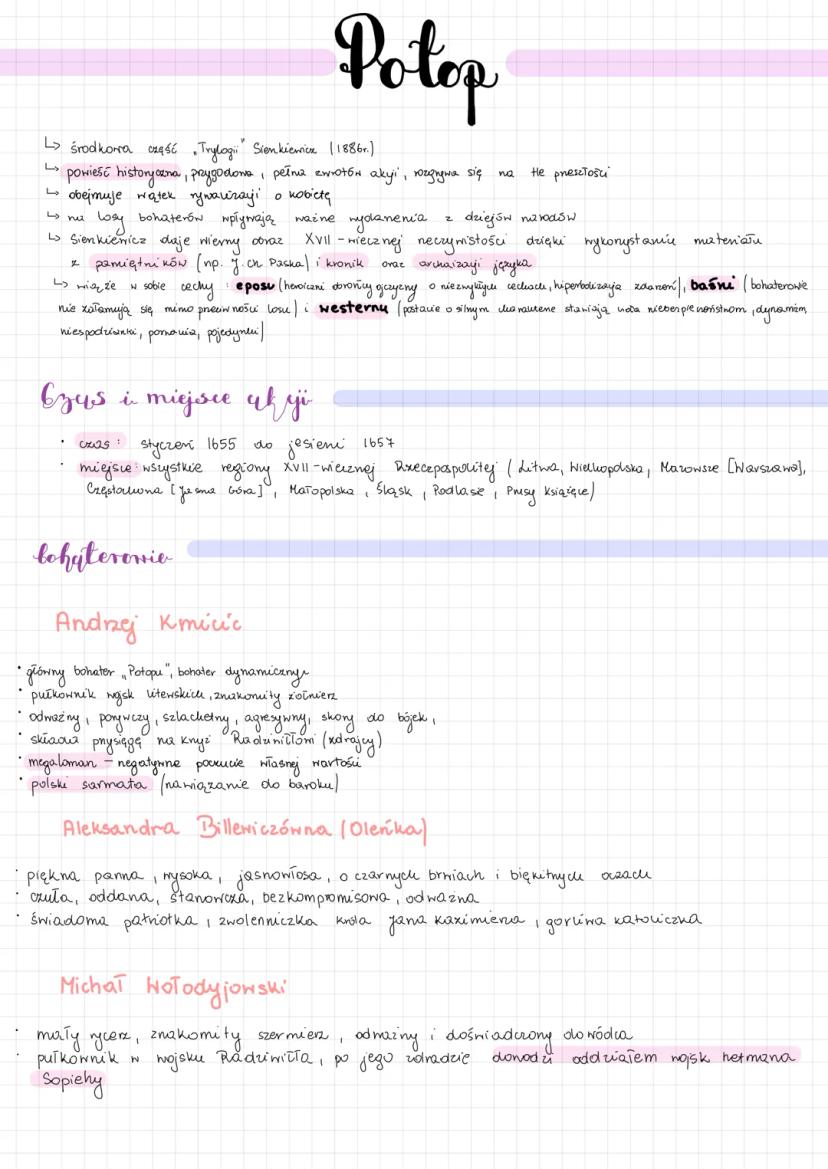 Potop
↳ środkowa część „Trylogii" Sienkiewicza (1886r.)
↳ powieść historyczna, przygodowa, pełna zwrotów akcji, rozgrywa się na tle przeszłości
↳ obejmuje wątek rywalizacji o kobietę
↳ na losy bohaterów wpływają ważne wydarzenia z dziejów narodów
↳ Sienkiewicz daje wierny obraz XVII-wiecznej rzeczywistości dzięki wykorzystaniu materiału
z pamiętników (np. J.Ch Paska) i kronik oraz archaizacji języka
↳ wiąże w sobie cechy: eposu (heroiczni obrońcy ojczyzny o niezwykłych cechach, hiperbolizacja zdarzeń), baśni (bohaterowie
nie załamują się mimo przeciwności losu) i westernu (postacie o silnym charakterze stawiają czoła niebezpieczeństwom, dynamizm,
niespodzianki, porwania, pojedynki)
Czas i miejsce akcji
· czas: styczeń 1655 do jesieni 1657
· miejsce: wszystkie regiony XVII-wiecznej Rzeczpospolitej (Litwa, Wielkopolska, Mazowsze [Warszawa],
Częstochowa [Jasna Góra], Małopolska, Śląsk, Podlasie, Prusy Książęce)
bohaterowie
Andrzej Kmicic
· główny bohater „Potopu", bohater dynamiczny
· pułkownik wojsk litewskich, znakomity żołnierz
· odważny, porywczy, szlachetny, agresywny, skory do bójek,
· składa przysięgę na krzyż Radziwiłłowi (zdrajcy)
· megaloman – negatywne poczucie własnej wartości
· polski sarmata (nawiązanie do baroku)
Aleksandra Billewiczówna (Oleńka)
· piękna panna, wysoka, jasnowłosa, o czarnych brwiach i błękitnych oczach
· czuła, oddana, stanowcza, bezkompromisowa, odważna
· świadoma patriotka, zwolenniczka króla Jana Kazimierza, gorliwa katoliczka
Michał Wołodyjowski
· mały rycerz, znakomity szermierz, odważny i doświadczony dowódca
· pułkownik w wojsku Radziwiłła, po jego zdradzie dowodzi oddziałem wojsk hetmana
Sopiehy